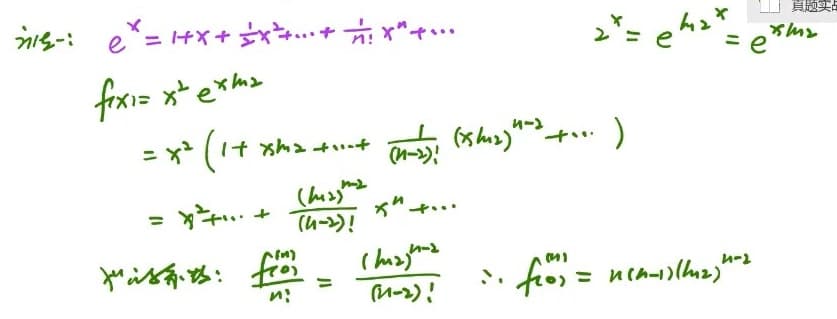 真题实战
法一: e^x = 1+x+\frac{1}{2}x^2+⋯+\frac{1}{n!}x^n+⋯  2^x = e^{ln2^x} = e^{xln2}
f(x) = x^2 e^{xln2}
= x^2 (1+ xln2 +⋯+ \frac{1}{(n-2)!} (xln2)^{n-2} +⋯ )
= x^2+⋯+ \frac{(ln2)^{n-2}}{(n-2)!} x^n +⋯
x^n的系数: \frac{f^{(n)}(0)}{n!} = \frac{(ln2)^{n-2}}{(n-2)!} ∴ f^{(n)}(0) = n(n-1)(ln2)^{n-2}